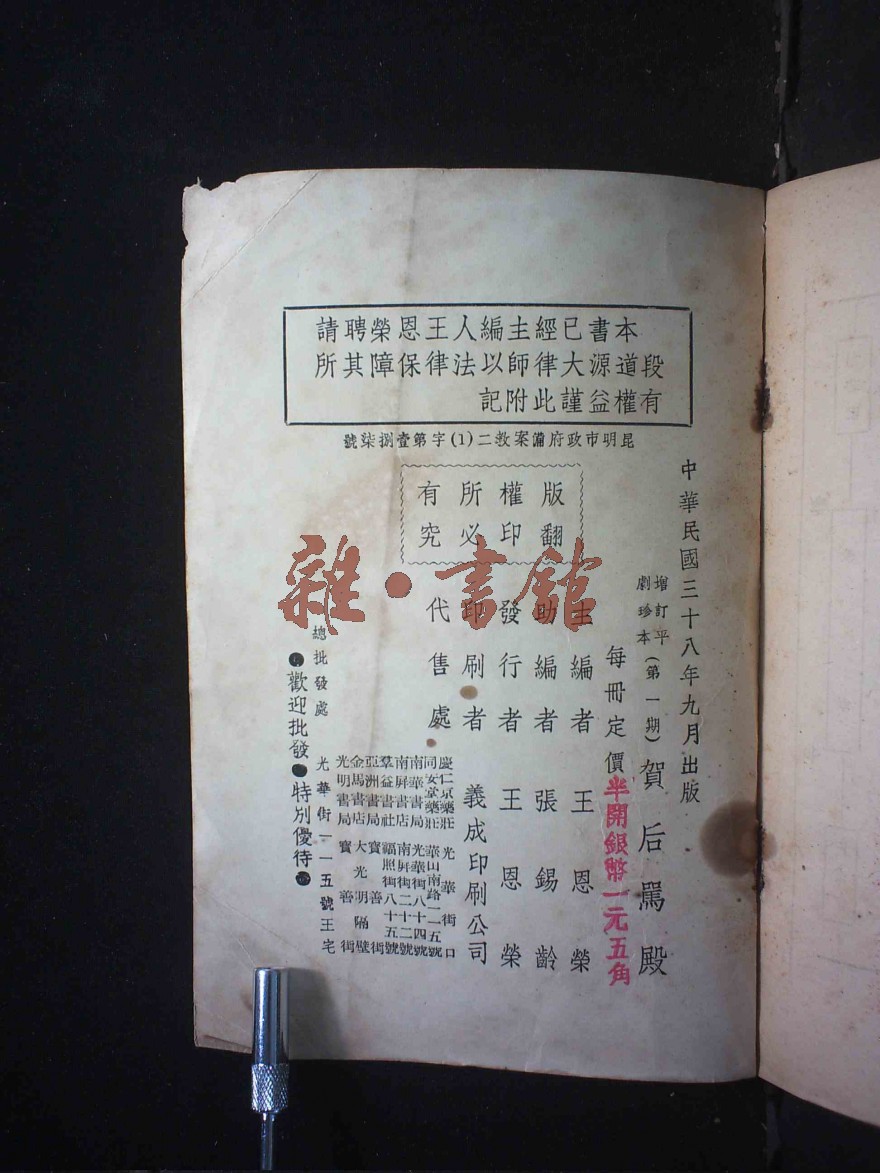 本書已經主編人王恩榮聘請
段道源大律師以法律保障其所
有權益謹此附記
昆明市政府備案教二(1)字第壹捌柒號
版權所有
翻印必究
中華民國三十八年九月出版
增訂平劇珍本(第一期)賀后罵殿
每冊定價半開銀幣一元五角
主編者 王恩榮
助編者 張錫齡
發行者 王恩榮
印刷者 義成印刷公司
代售處
慶仁京藥莊 光華街口
同安堂藥莊 華山南路一二五號
南華書局 光華街八十四號
南屏書店 南屏街二十二號
羣益書社 福照街八十五號
亞洲書局 寶善街
金馬書店 大光明隔壁
光明書局 寶善街
總批發處 光華街一一五號王宅
●歡迎批發●特別優待●
雜·書館